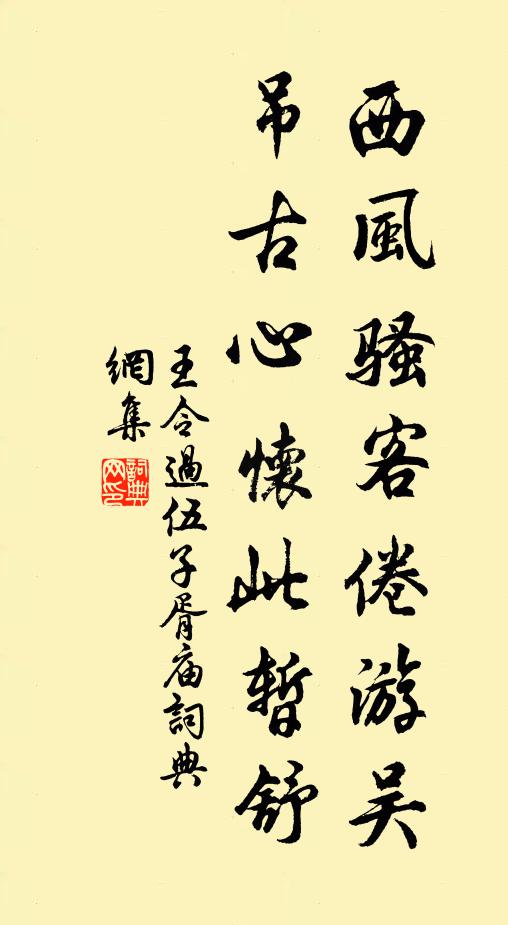 西風騷客倦游吴
吊古心懷此暫舒
王令過伍子胥庙詞典
網集
詞典
网印